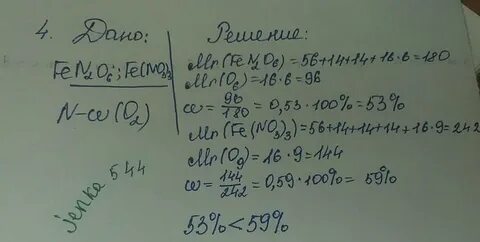 4. Дано:
FeN2O6; Fe(NO3)3
N-w(O2)
jenka544
Решение:
Mr(FeN2O6)=56+14+14+16·6=180
Mr(O6)=16·6=96
w=96/180=0,53·100%=53%
Mr(Fe(NO3)3)=56+14+14+14+16·9=242
Mr(O9)=16·9=144
w=144/242=0,59·100%=59%
53%<59%